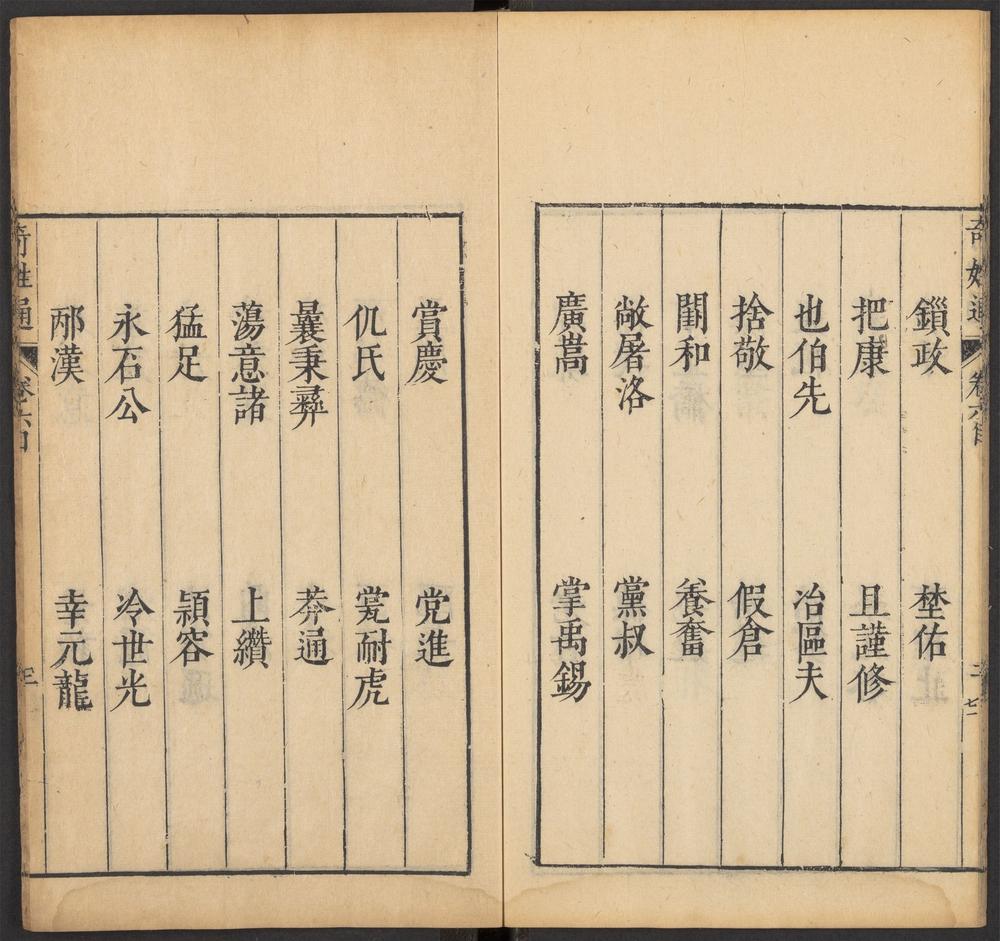 奇姓通 卷六目 二
鎖政 埜佑
把康 且謹修
也伯先 冶區夫
捨敬 假倉
閨和 養奮
敞屠洛 黨叔
廣嵩 掌禹錫
賞慶 党進
仉氏 甍耐虎
曩秉彞 莽通
蕩意諸 上纘
猛足 潁容
永石公 冷世光
邴漢 幸元龍
奇姓通 卷六目 三